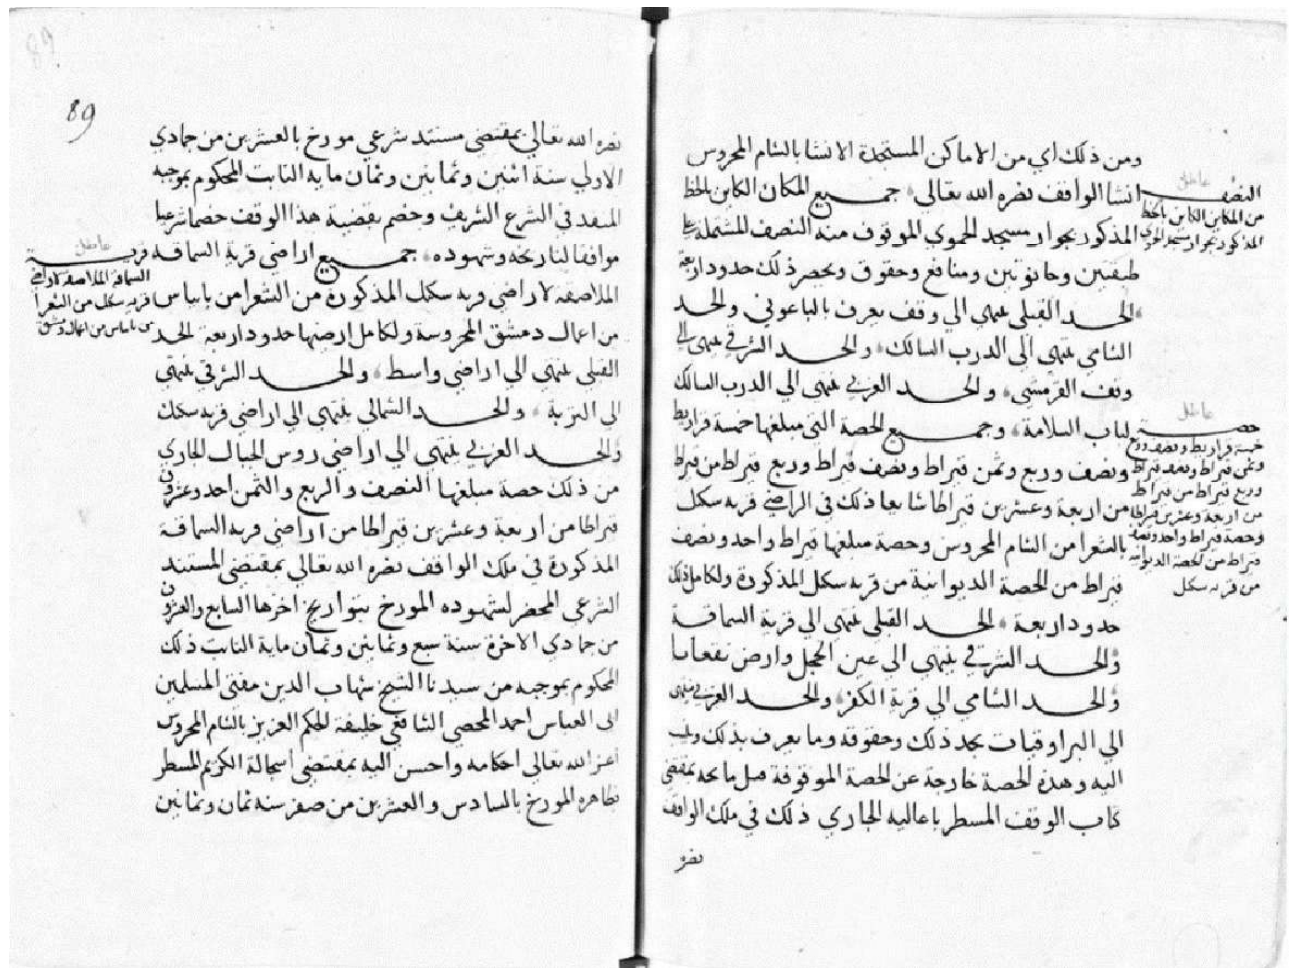 ومن ذلك اي من الاماكن المستجدة الانشا بالشام المحروس
انشا الواقف نصره الله تعالي جميع المكان الكاين بالخط
المذكور بجوار مسجد الحموي الموقوف منه النصف المشتملة علي
طبقتين وحانوتين ومنافع وحقوق ويحصر ذلك حدود اربعة
الحد القبلي ينتهي الي وقف يعرف بالباعوني والحد
الشامي ينتهي الي الدرب السالك والحد الشرقي ينتهي الي
وقف القرمشي والحد الغربي ينتهي الي الدرب السالك
لباب السلامة وجميع الحصة التي مبلغها خمسة قراريط
ونصف وربع وثمن قيراط ونصف قيراط وربع قيراط من قيراط
من اربعة وعشرين قيراطا شايعا ذلك في اراضي قرية سكل
بالشعرا من الشام المحروس وحصة مبلغها قيراط واحد ونصف
قيراط من الحصة الديوانية من قرية سكل المذكورة ولكامل ذلك
حدود اربعة الحد القبلي ينتهي الي قرية السماقة
والحد الشرقي ينتهي الي عين الحجل وارض
والحد الشامي الي قرية الكفر والحد الغربي ينتهي
الي البراوقيات بحد ذلك وحقوقه وما يعرف بذلك وينسب
اليه وهذه الحصة خارجة عن الحصة الموقوفة قبل تاريخه بمقتضي
كتاب الوقف المسطر باعاليه الجاري ذلك في ملك الواقف
نصره
عاطل
النصف
من المكان الكاين بالخط
المذكور بجوار مسجد الحموي
عاطل
حصة
خمسة قراريط ونصف وربع
وثمن قيراط ونصف قيراط
وربع قيراط من قيراط
من اربعة وعشرين قيراطا
وحصة قيراط واحد ونصف
قيراط من الحصة الديوانية
من قرية سكل
89
89
نصره الله تعالي بمقتضي مستند شرعي مورخ بالعشرين من جمادي
الاولي سنة اثنين وثمانين وثمان ماية الثابت المحكوم بموجبه
المنفد في الشرع الشريف وخصم بقضية هذا الوقف خصما شرعيا
موافقا لتاريخه وشهوده جميع اراضي قرية السماقة
الملاصقة لاراضي قرية سكيك المذكورة من الشعرا من بانياس
من اعمال دمشق المحروسة ولكامل ارضها حدود اربعة الحد
القبلي ينتهي الي اراضي واسط والحد الشرقي ينتهي
الي التربة والحد الشمالي ينتهي الي اراضي قرية سكيك
والحد الغربي ينتهي الي اراضي روس الجبال الجاري
من ذلك حصة مبلغها النصف والربع والثمن احد وعشرون
قيراطا من اربعة وعشرين قيراطا من اراضي قرية السماقة
المذكورة في ملك الواقف نصره الله تعالي بمقتضي المستند
الشرعي المحضر لشهوده المورخ بتواريخ اخرها السابع والعشرون
من جمادي الاخرة سنة سبع وثمانين وثمان ماية الثابت ذلك
المحكوم بموجبه من سيدنا الشيخ شهاب الدين مفتي المسلمين
ابي العباس احمد المحصي الشافعي خليفة الحكم العزيز بالشام المحروس
اعز الله تعالي احكامه واحسن اليه بمقتضي اسجالة الكريم المسطر
بظاهره المورخ بالسادس والعشرين من صفر سنة ثمان وثمانين
عاطل
قرية
السماقة الملاصقة لاراضي
قرية سكيك من الشعرا
من بانياس من اعمال دمشق